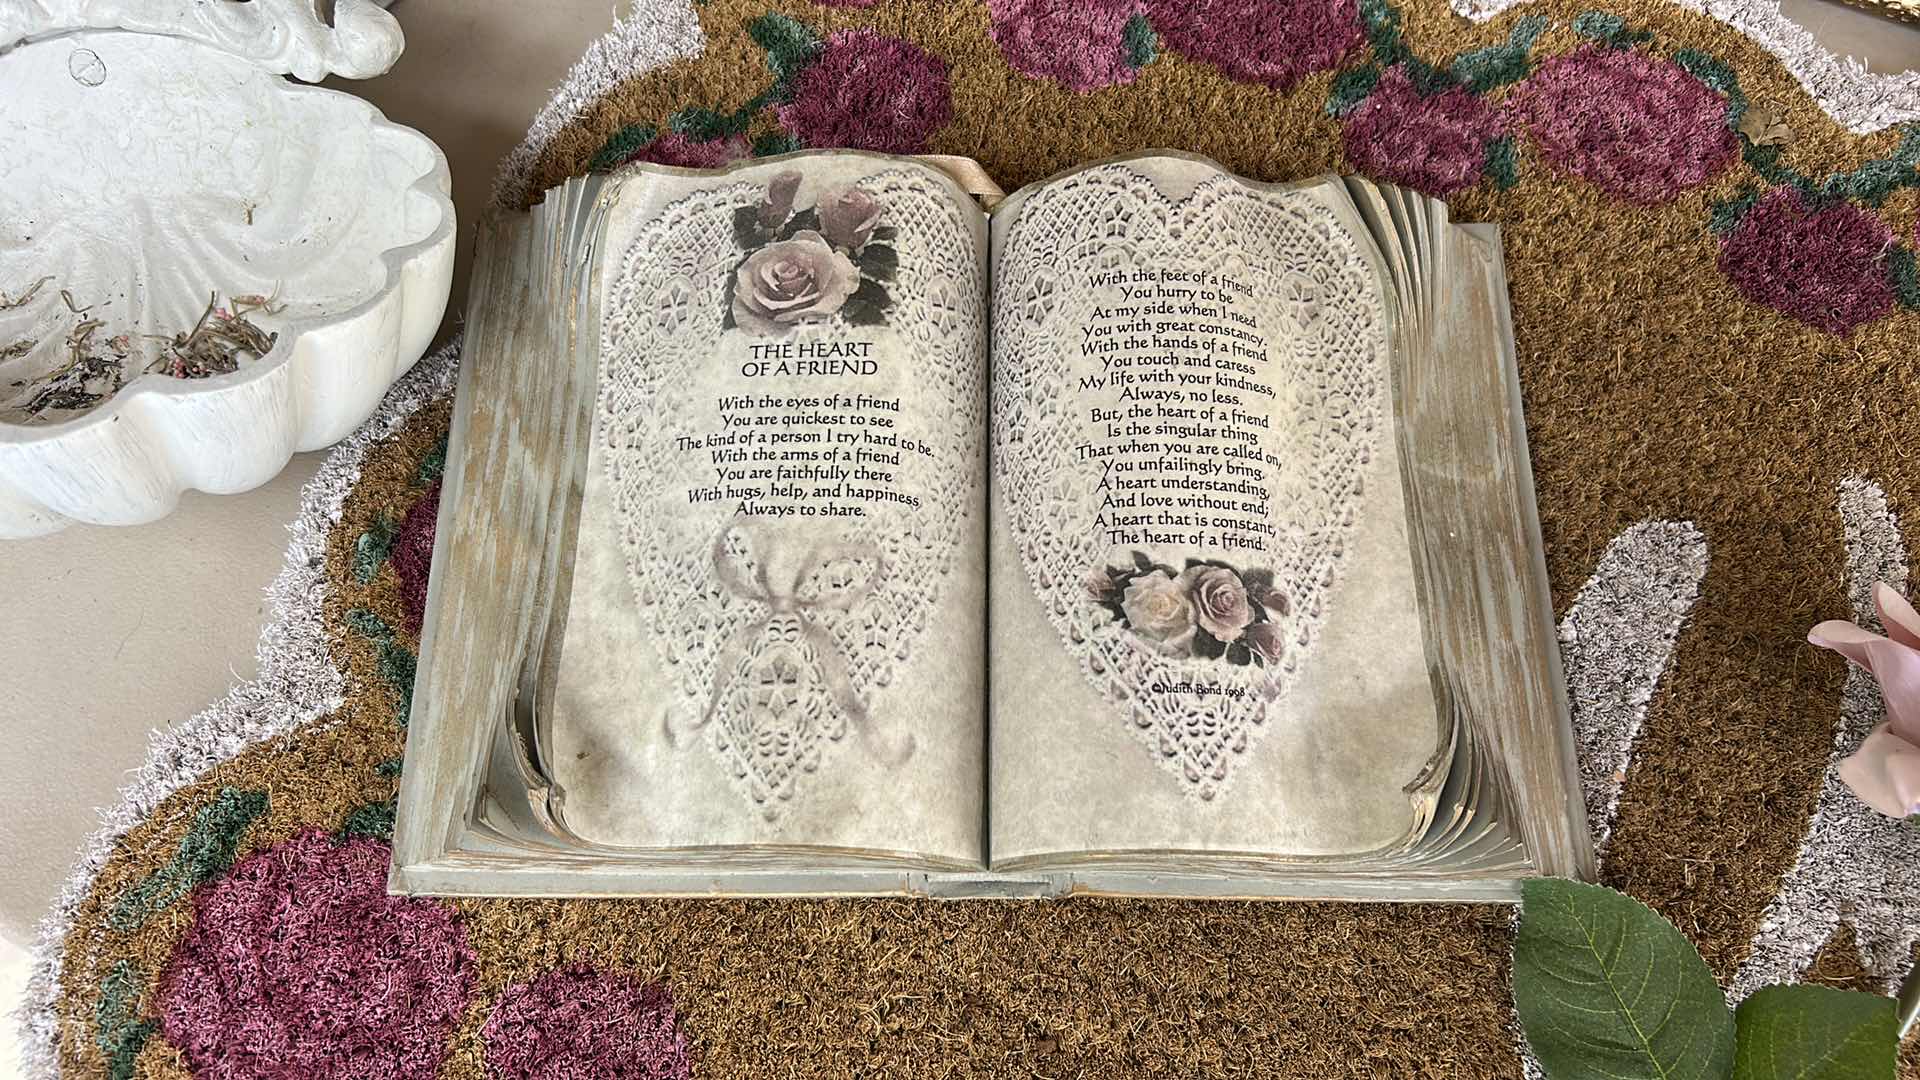 THE HEART
OF A FRIEND
With the eyes of a friend
You are quickest to see
The kind of a person I try hard to be.
With the arms of a friend
You are faithfully there
With hugs, help, and happiness
Always to share.
With the feet of a friend
You hurry to be
At my side when I need
You with great constancy.
With the hands of a friend
You touch and caress
My life with your kindness,
Always, no less.
But, the heart of a friend
Is the singular thing
That when you are called on,
You unfailingly bring.
A heart understanding,
And love without end;
A heart that is constant,
The heart of a friend.
©Judith Bond 1998